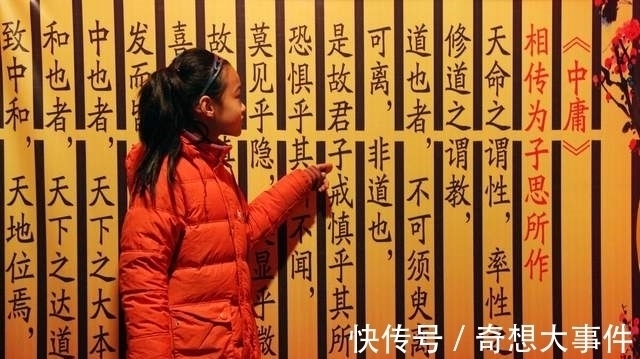 《中庸》
相传为子思所作
天命之谓性，率性
修道之谓教，
道也者，不可须臾离
可离，非道也，
是故君子戒慎乎其所
恐惧乎其不闻，
莫见乎隐，显乎微
故
喜
发而
中也者，天下之大本
和也者，天下之达道
致中和，天地位焉，
快传号 / 奇想大事件